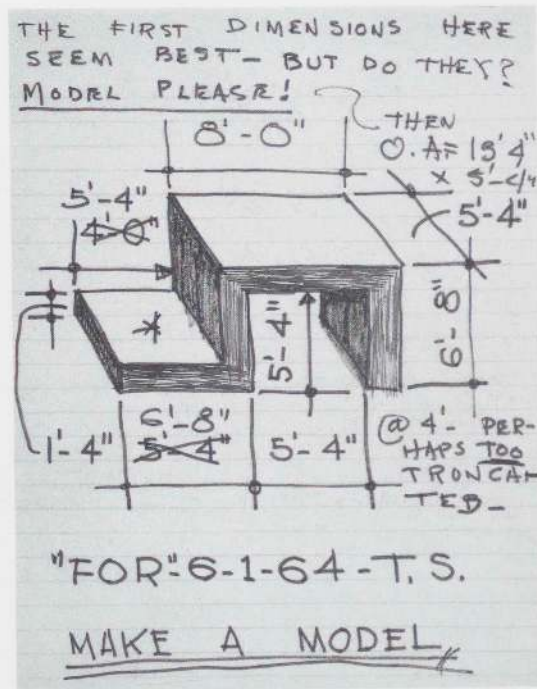 THE FIRST DIMENSIONS HERE
SEEM BEST- BUT DO THEY?
MODEL PLEASE!
THEN
8'-0"
O.A= 13'4"
x 5'-4"
5'-4"
5'-4"
4'-0"
5'-4"
6'-8"
1'-4"
6'-8"
5'-4"
5'-4"
@ 4'- PER-
HAPS TOO
TRONCA-
TED-
"FOR"-6-1-64-T.S.
MAKE A MODEL